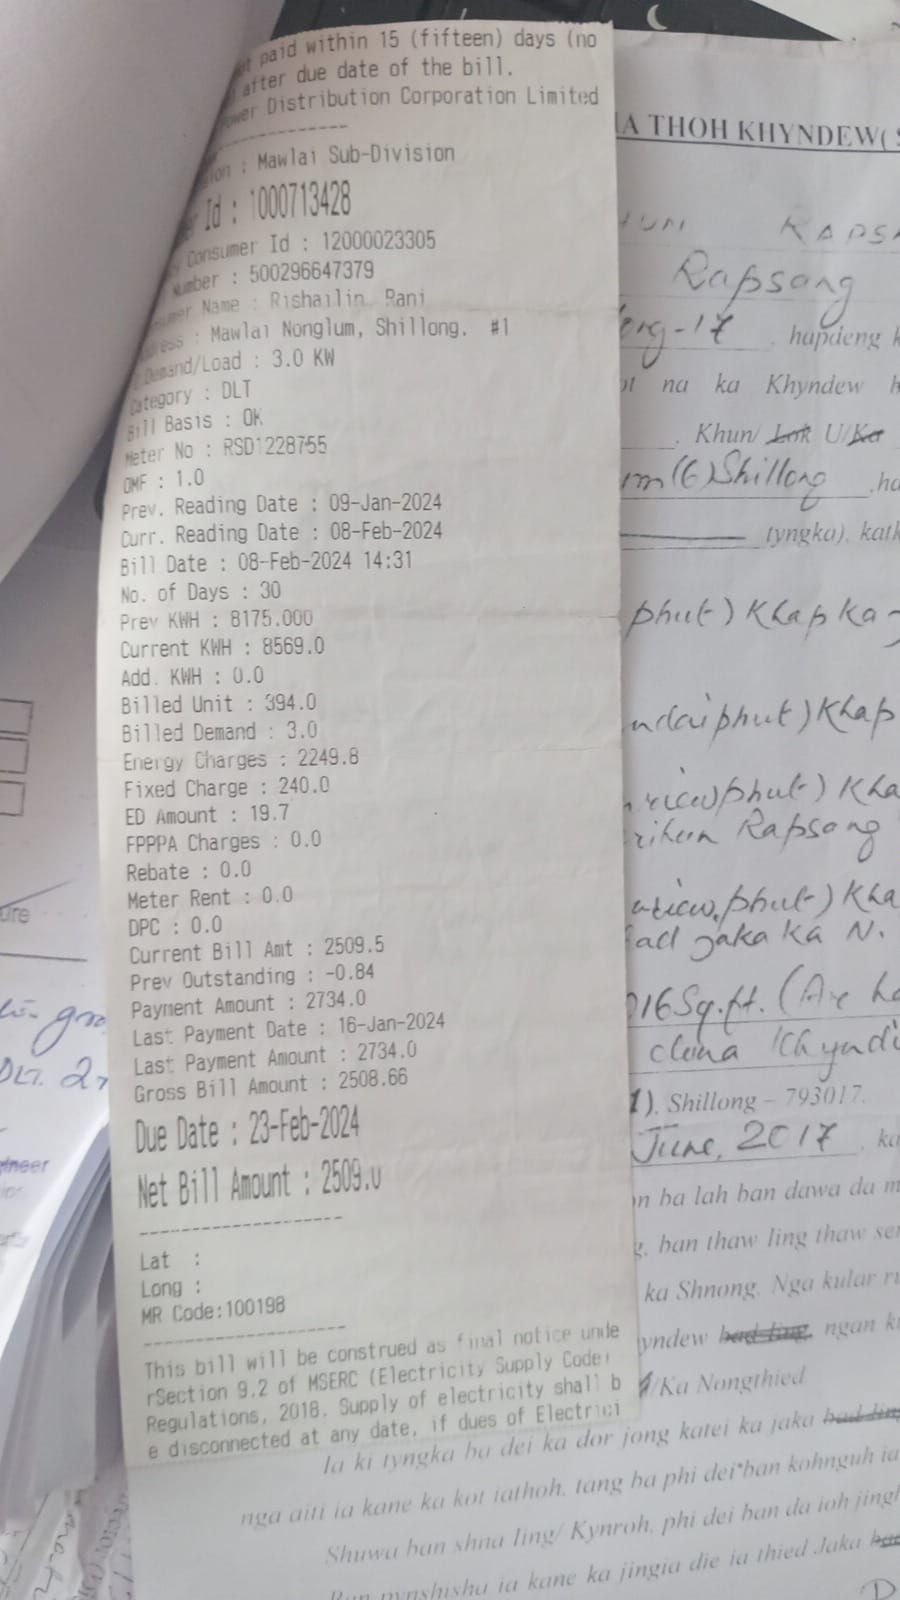 paid within 15 (fifteen) days (no
after due date of the bill.
Power Distribution Corporation Limited
--------------
: Mawlai Sub-Division
Id : 1000713428
Consumer Id : 12000023305
Number : 500296647379
Name : Rishailin Rani
: Mawlai Nonglum, Shillong. #1
Demand/Load : 3.0 KW
Category : DLT
Bill Basis : OK
Meter No : RSD1228755
OMF : 1.0
Prev. Reading Date : 09-Jan-2024
Curr. Reading Date : 08-Feb-2024
Bill Date : 08-Feb-2024 14:31
No. of Days : 30
Prev KWH : 8175.000
Current KWH : 8569.0
Add. KWH : 0.0
Billed Unit : 394.0
Billed Demand : 3.0
Energy Charges : 2249.8
Fixed Charge : 240.0
ED Amount : 19.7
FPPPA Charges : 0.0
Rebate : 0.0
Meter Rent : 0.0
DPC : 0.0
Current Bill Amt : 2509.5
Prev Outstanding : -0.84
Payment Amount : 2734.0
Last Payment Date : 16-Jan-2024
Last Payment Amount : 2734.0
Gross Bill Amount : 2508.66
Due Date : 23-Feb-2024
Net Bill Amount : 2509.0
--------------------
Lat :
Long :
MR Code:100198
--------------------
This bill will be construed as final notice unde
rSection 9.2 of MSERC (Electricity Supply Code)
Regulations, 2018. Supply of electricity shall b
e disconnected at any date, if dues of Electrici
A THOH KHYNDEW( S
Rapsang
-17 hapdeng k
na ka Khyndew
Khun/ Lok U/Ka
(6) Shillong
tyngka), katk
phut) Khap ka
phut) Khap
phut) Kha
Rapsang
phut) Kha
jaka ka N.
16 Sq.ft.
1), Shillong – 793017.
June, 2017
ba lah ban dawa da m
ban thaw ling thaw
ka Shnong. Nga kular
had ling, ngan
/Ka Nongthied
la ki tyngka ba dei ka dor jong katei ka jaka
nga aiti ia kane ka kot iathoh, tang ba phi dei ban kohnguh ia
Shuwa ban shna Iing/ Kynroh, phi dei ban da ioh
ia kane ka jingia die ia thied Jaka